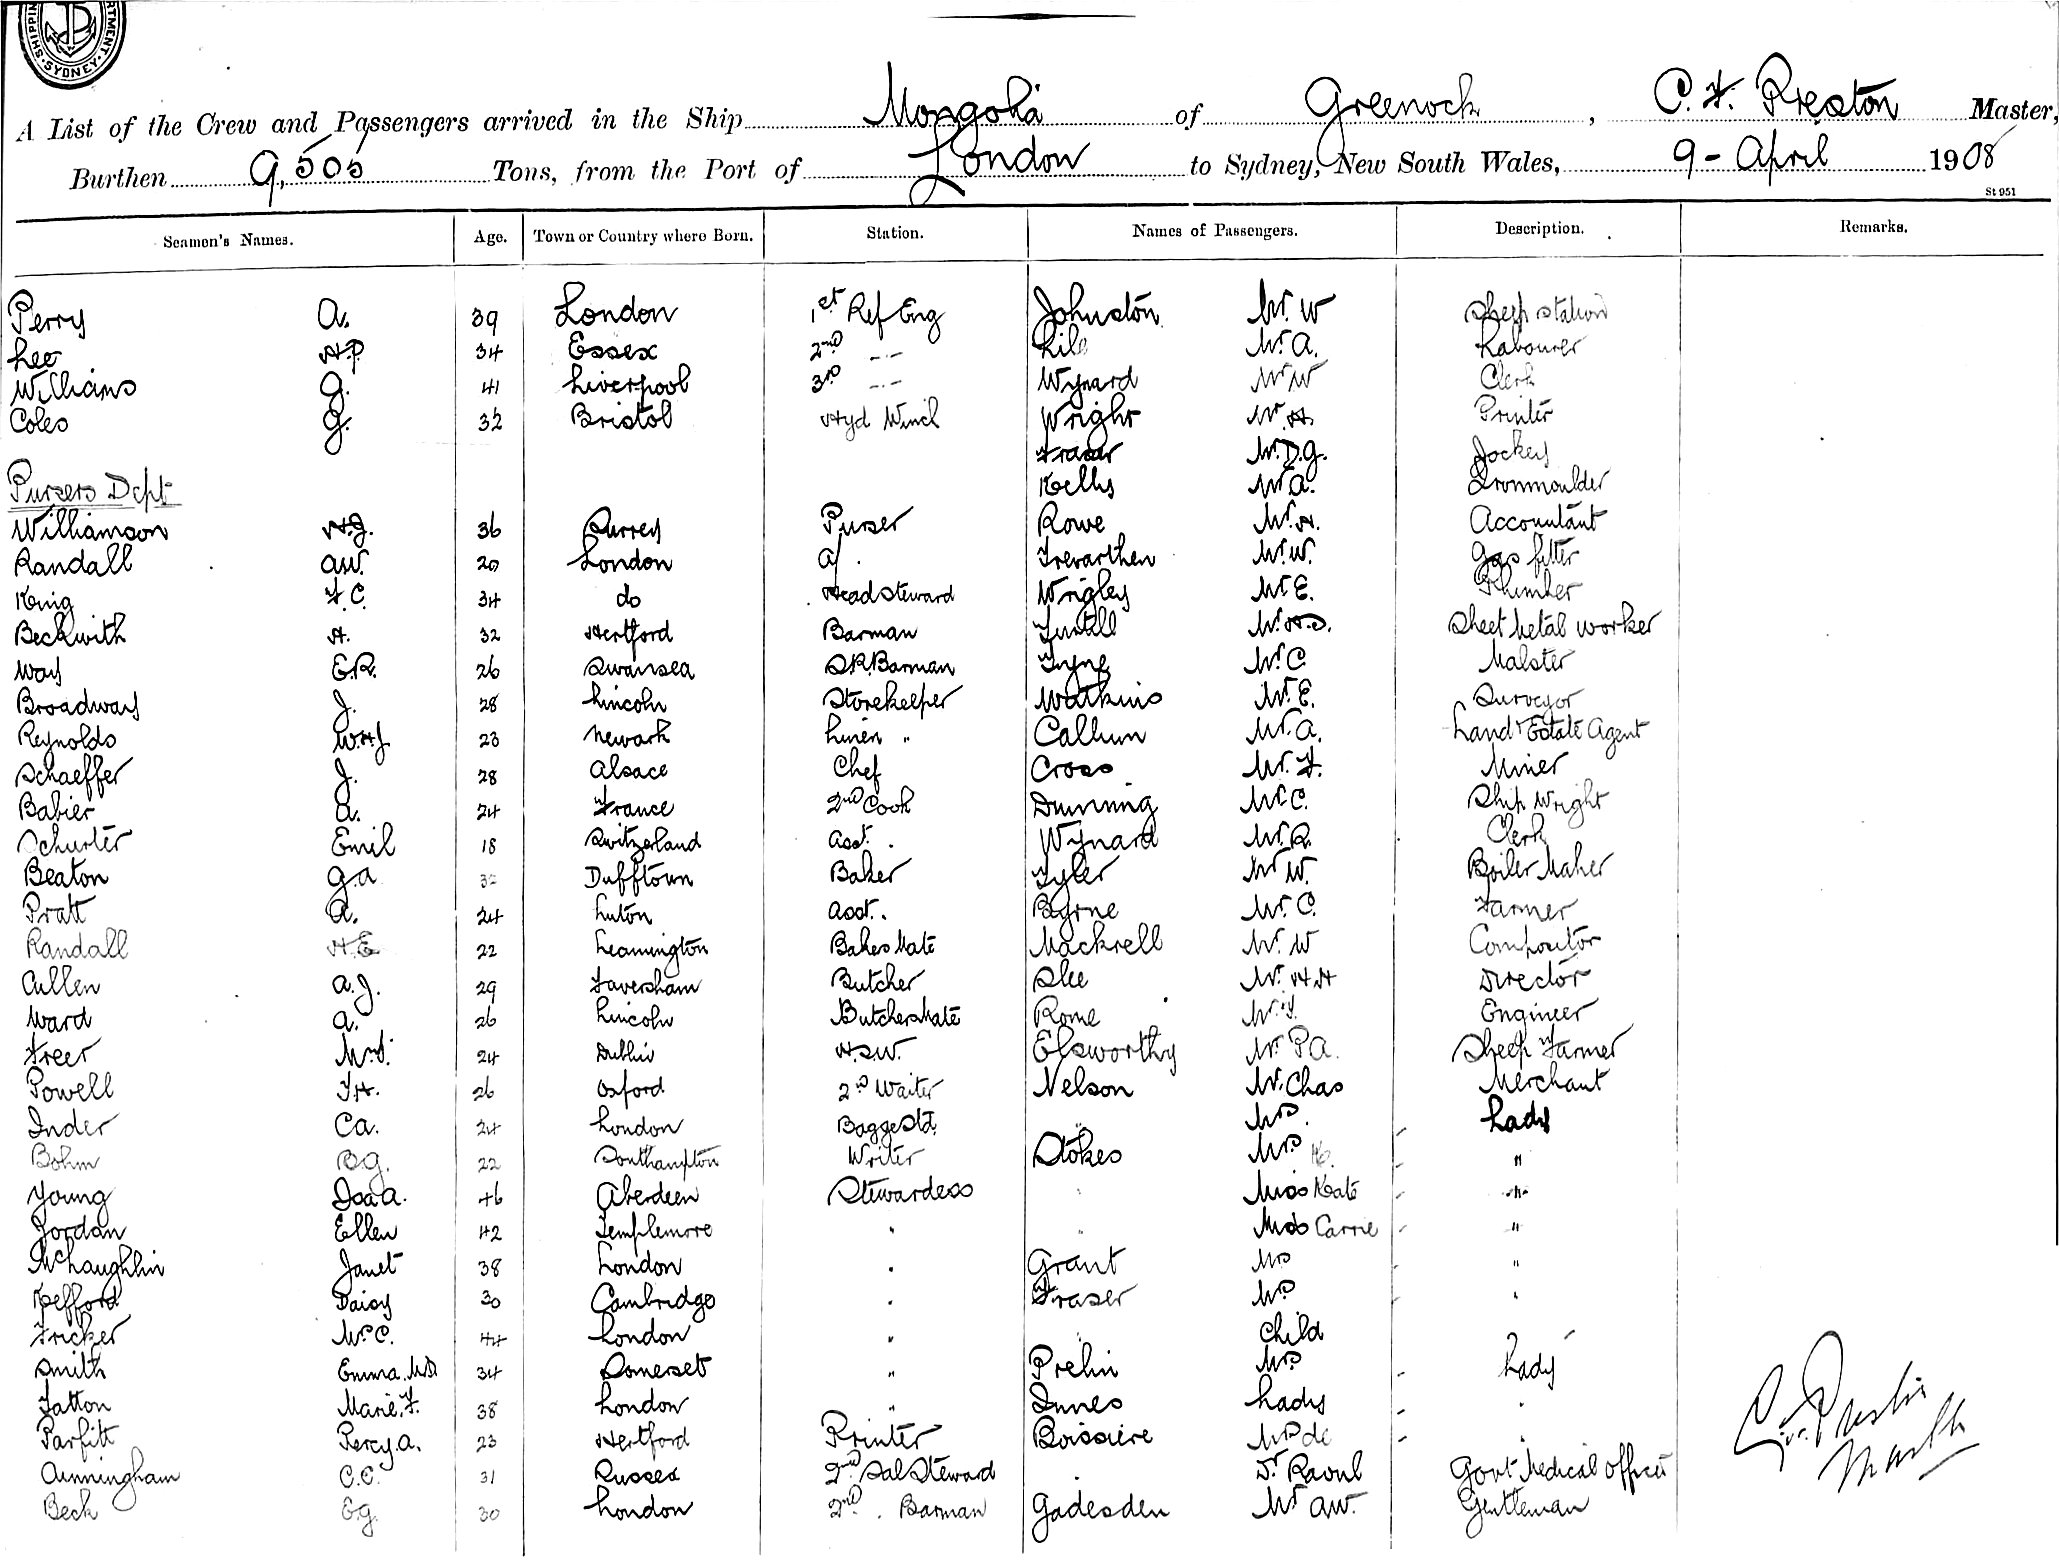 SHIPPING DEPARTMENT. SYDNEY.
A List of the Crew and Passengers arrived in the Ship Mongolia of Greenock, C. F. Preston Master,
Burthen 9,505 Tons, from the Port of London to Sydney, New South Wales, 9 - April 1908
St 951
Seamen's Names. Age. Town or Country where Born. Station. Names of Passengers. Description. Remarks.
Perry A. 39 London 1st Ref Eng Johnston Mr. W Sheep station
Lee H.P. 34 Essex 2nd -"- Lile Mr. A. Labourer
Williams G. 41 Liverpool 3rd -"- Wynard Mr W Clerk
Coles G. 32 Bristol Hyd Winch Wright Mr. H. Printer
Fraser Mr. D.G. Jockey
Pursers Dept Kellys Mr. A. Ironmoulder
Williamson H.J. 36 Surrey Purser Rowe Mr. H. Accountant
Randall A.W. 20 London a/. Trevarthen Mr. W. Gas fitter
King F.C. 34 do Head Steward Wrigley Mr E. Plumber
Beckwith H. 32 Hertford Barman Mr. H.D. Sheet Metal Worker
Way E.R. 26 Swansea S.R. Barman Tyne Mr. C. Malster
Broadway J. 28 Lincoln Storekeeper Watkins Mr. E. Surveyor
Reynolds W.H.J. 23 Newark Linen " Callum Mr. A. Land & Estate Agent
Schaeffer J. 28 Alsace Chef Cross Mr. F. Miner
Babier A. 24 France 2nd Cook Dunning Mr C. Ship Wright
Schurter Emil 18 Switzerland Asst. Wynard Mr. R. Clerk
Beaton G.A 32 Dufftown Baker Tyler Mr W. Boiler Maker
Pratt A. 24 Luton Asst.. Byrne Mr. C. Farmer
Randall H.E 22 Leamington Bakers Mate Mackrell Mr. W Compositor
Cullen A.J. 29 Faversham Butcher Slee Mr. H H Director
Ward A. 26 Lincoln Butchers Mate Rome Mr. J. Engineer
Freer M.S. 24 Dublin H.S.W. Elsworthy Mr. P.A. Sheep Farmer
Powell F.H. 26 Oxford 2nd Waiter Nelson Mr. Chas Merchant
Inder C.A. 24 London Bagge Std. " Mrs. Lady
Bohm B.G. 22 Southampton Writer Stokes Mrs H. "
Young Isa A. 46 Aberdeen Stewardess " Miss Kate "
Jordan Ellen 42 Templemore " " Miss Carrie "
McLaughlin Janet 38 London " Grant Mrs "
Kefford Daisy 30 Cambridge " Fraser Mrs "
Fricker Mrs C. 44 London " " Child
Smith Emma. M.D. 34 Somerset " Prelin Mrs Lady
Tatton Marie. F. 38 London " Innes Lady "
Parfitt Percy. A. 23 Hertford Printer Boissiere Mrs de "
Cunningham C.C. 31 Sussex 2nd Sal Steward " Dr. Raoul Govt Medical Officer
Beck E.G. 30 London 2nd . Barman Gadesden Mr A.W. Gentleman
Preston
Master